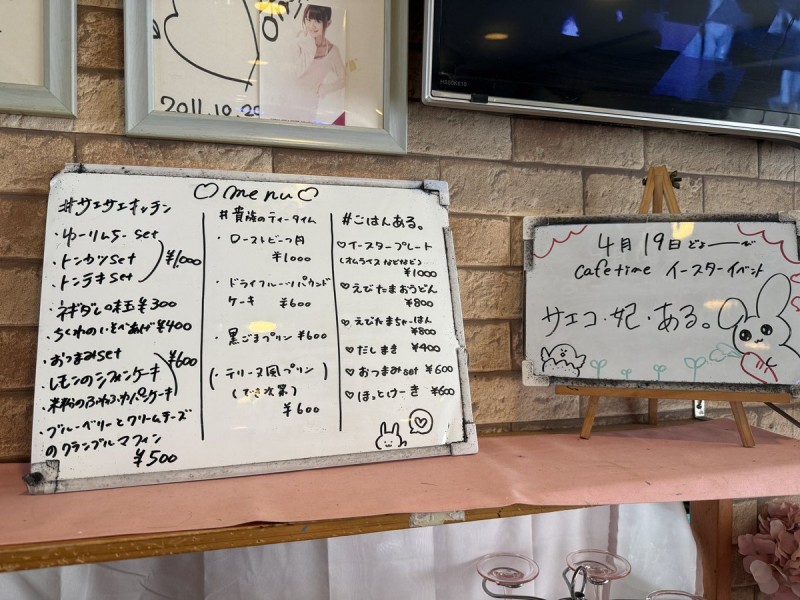 2011.10.20
♡ menu ♡
#サエサエキッチン
・ゆーりんちー set
・トンカツ set
・トンテキ set
¥1,000
・ネギダレ味玉 ¥300
・ちくわのいそべあげ ¥400
・おつまみ set
・レモンのシフォンケーキ
・米粉のふわふわパンケーキ
¥600
・ブルーベリーとクリームチーズ
のクランブルマフィン
¥500
#貴族のティータイム
・ローストビーフ丼
¥1000
・ドライフルーツパウンド
ケーキ ¥600
・黒ごまプリン ¥600
(・テリーヌ風プリン)
(でき次第)
¥600
#ごはんある。
♡イースタープレート
(オムライスなどなど)
¥1000
♡えびたまおうどん
¥800
♡えびたまちゃーはん
¥800
♡だしまき ¥400
♡おつまみset ¥600
♡ほっとけーき ¥600
4月19日どょーび
Cafetime イースターイベント
サエコ・妃・ある。